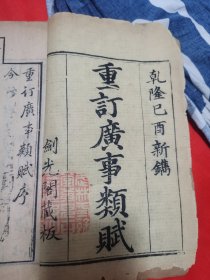 乾隆己酉新鐫
重訂廣事類賦
劍光閣藏板
重訂廣事類賦序